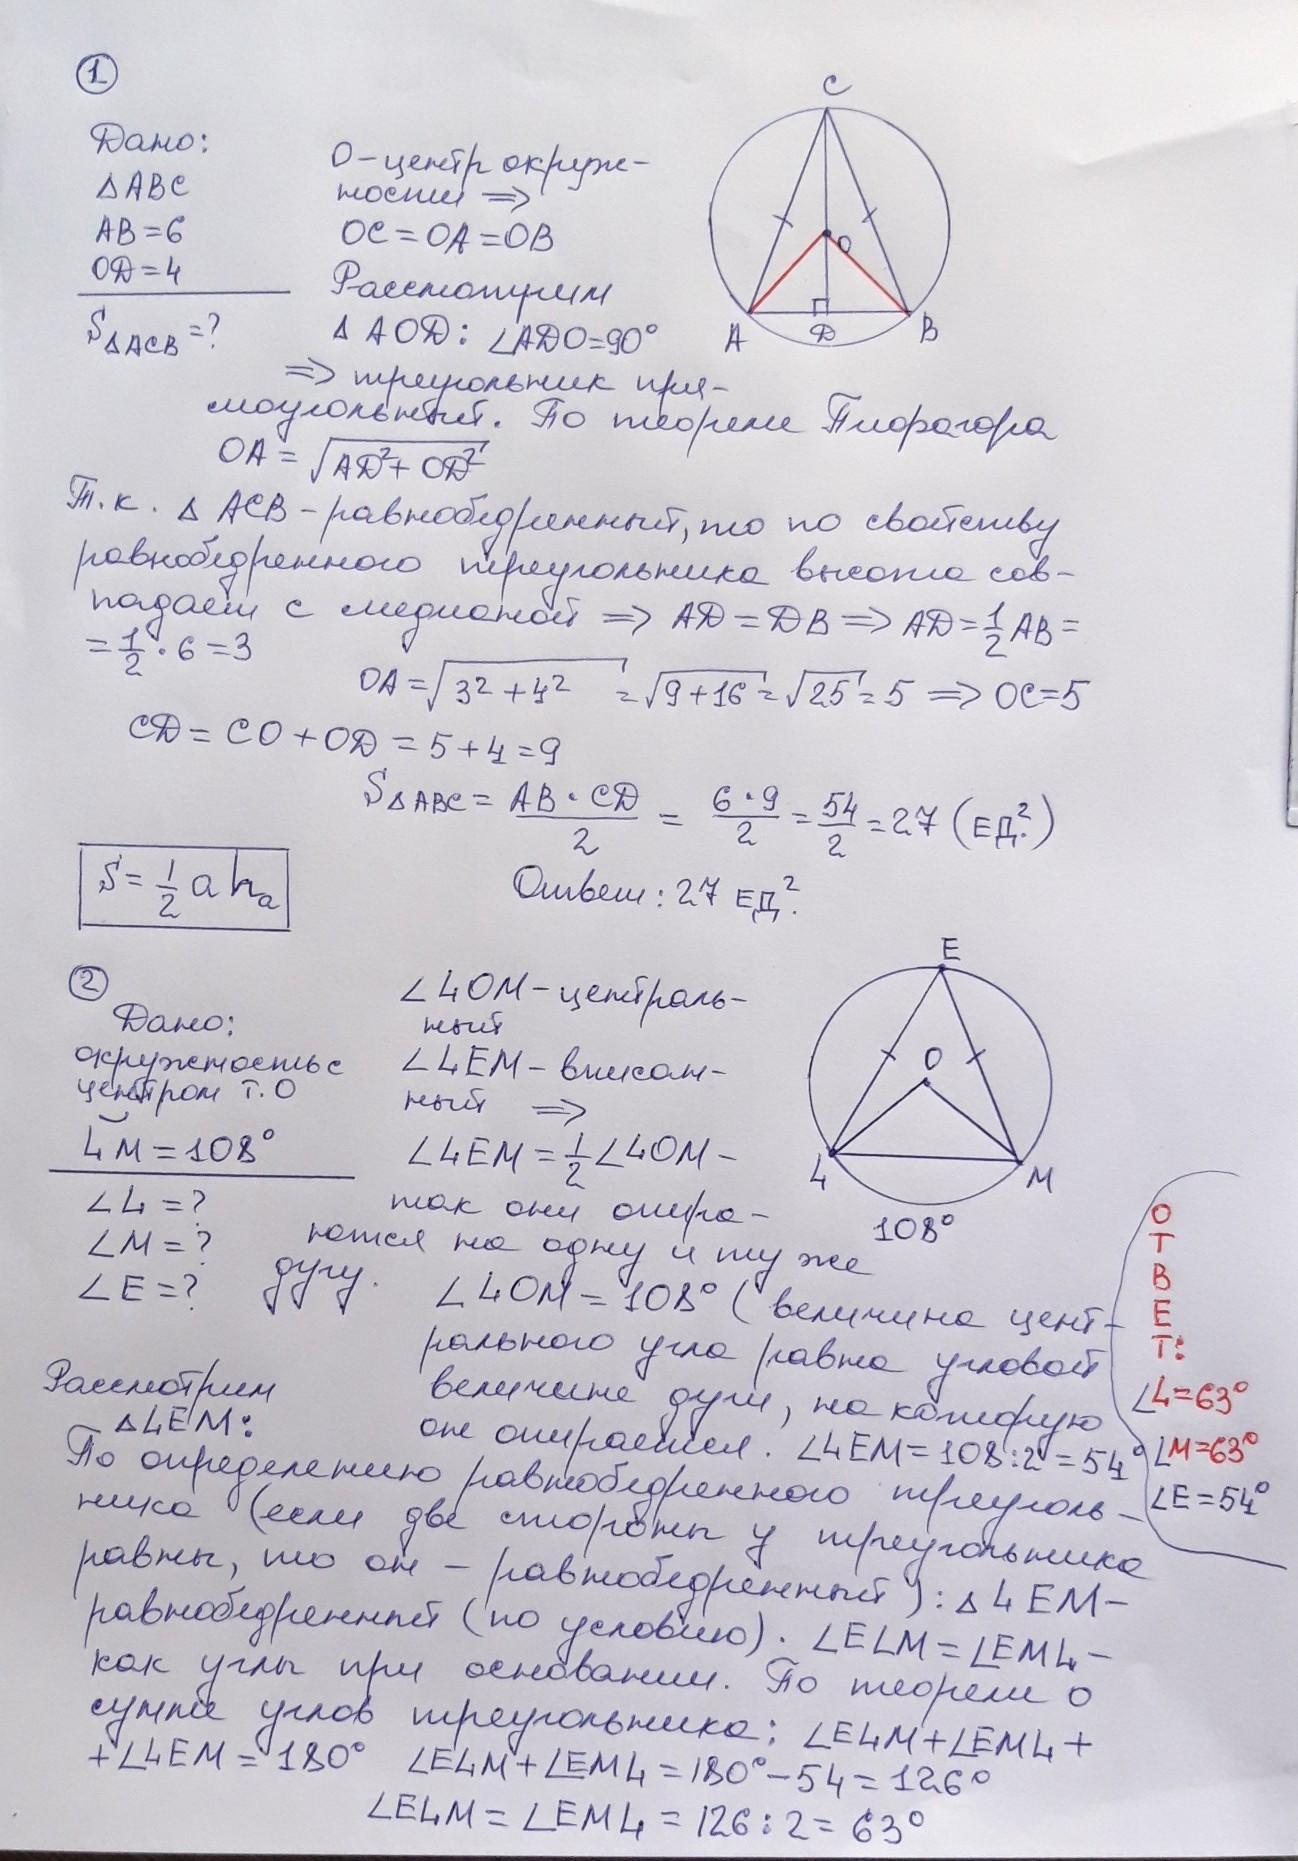 1
Дано:
△ABC
AB=6
OD=4
S△ACB=?
O-центр окруж-
ности =>
OC=OA=OB
Рассмотрим
△AOD: ∠ADO=90°
=> треугольник пря-
моугольный. По теореме Пифагора
OA = √(AD²+OD²)
C
O
A
D
B
Т.к. △ACB-равнобедренный, то по свойству
равнобедренного треугольника высота сов-
падает с медианой => AD=DB => AD=1/2AB=
=1/2·6=3
OA=√(3²+4²)=√(9+16)=√25=5 => OC=5
CD=CO+OD=5+4=9
S△ABC=AB·CD/2=6·9/2=54/2=27 (ЕД.²)
S=1/2 a hₐ
Ответ: 27 ЕД.²
2
Дано:
окружность с
центром т.О
◡LM=108°
∠L=?
∠M=?
∠E=?
∠LOM-централь-
ный
∠LEM-вписан-
ный =>
∠LEM=1/2∠LOM-
так они опира-
ются на одну и ту же
дугу.
E
O
L
M
108°
∠LOM=108° (величина цент-
рального угла равна угловой
величине дуги, на которую
он опирается. ∠LEM=108:2=54°
Рассмотрим
△LEM:
По определению равнобедренного треуголь-
ника (если две стороны у треугольника
равны, то он - равнобедренный): △LEM-
равнобедренный (по условию). ∠ELM=∠EML-
как углы при основании. По теореме о
сумме углов треугольника: ∠ELM+∠EML+
+∠LEM=180° ∠ELM+∠EML=180°-54=126°
∠ELM=∠EML=126:2=63°
ОТВЕТ:
∠L=63°
∠M=63°
∠E=54°